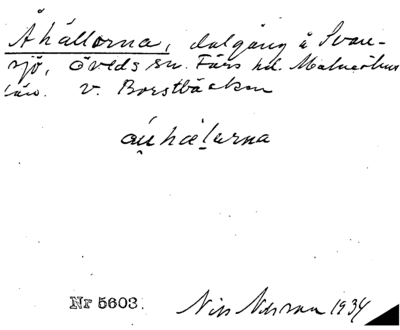 Åhällorna, dalgång å Svan-
sjö, Öveds sn. Färs hd. Malmöhus
län. v. Borstbäcken
áuhælarna
Nr 5603. Nils Nilsson 1934